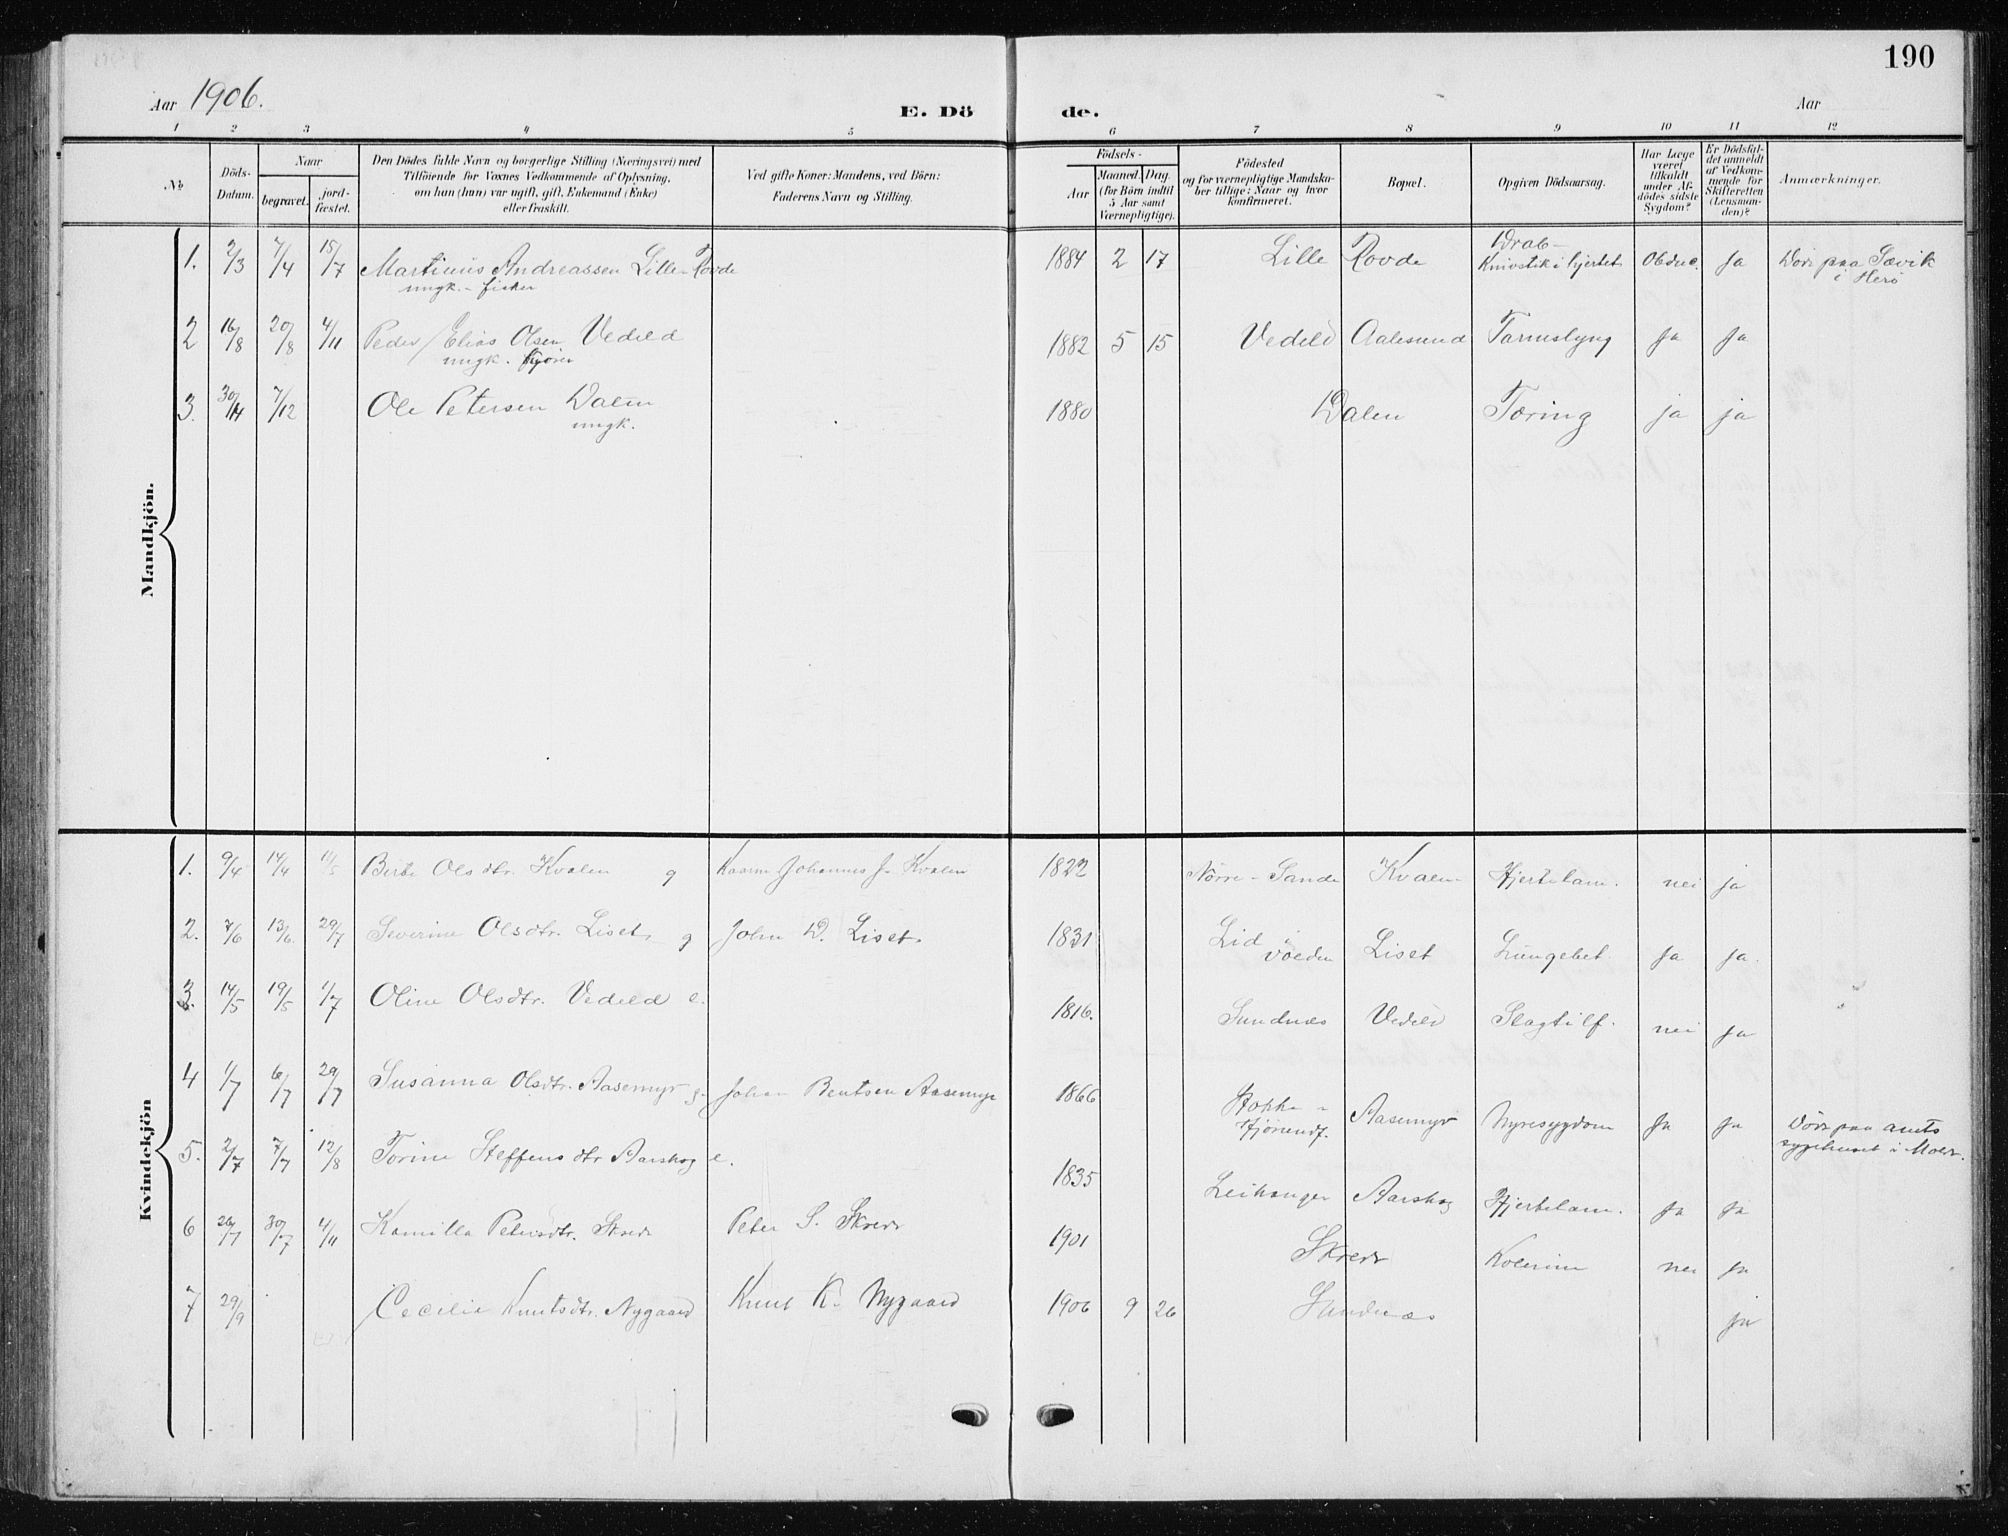 190
Aar 1906.
E. Dö de.
Aar
1 2 3 4 5 6 7 8 9 10 11 12
No
Döds-Datum.
Naar
begravet.
jord-fæstet.
Den Dödes fulde Navn og borgerlige Stilling (Næringsvei) med
Tilföiende for Voxnes Vedkommende af Oplysning,
om han (hun) var ugift, gift, Enkemand (Enke)
eller fraskilt.
Ved gifte Koner: Mandens, ved Börn:
Faderens Navn og Stilling.
Födsels-
Aar
Maaned. Dag.
(for Börn indtil
5 Aar samt
Værnepligtige).
Födested
og for værnepligtige Mandska-
ber tillige: Naar og hvor
konfirmeret.
Bopæl.
Opgiven Dödsaarsag.
Har Læge
været
tilkaldt
under Af-
dödes sidste
Sygdom?
Er Dödsfal-
det anmeldt
af Vedkom-
mende for
Skifteretten
(Lensman-
den)?
Anmærkninger.
Mandkjön.
1. 2/3 7/4 15/7 Martinus Andreassen Lille-Rovde 1884 2 17 Lille Rovde Drab- Obduc. Ja Döde paa Sævik
ungk. - fisker Knivstik i hjertet i Herö
2 16/8 20/8 4/11 Peder Elias Olsen Vedeld 1882 5 15 Vedeld Aalesund Tarmslyng Ja Ja
ungk.
3. 30/11 7/12 Ole Petersen Dalen 1880 Dalen Tæring ja ja
ungk.
Kvindekjön
1. 9/4 14/4 Berte Olsdtr. Kvalen g Johannes J. Kvalen 1822 Nörre-Sande Kvalen Hjertelam. nei ja
2. 7/6 13/6 29/7 Severine Olsdtr. Liset g John D. Liset. 1831 Lid i Liset Lungebet. Ja Ja.
Volden
3. 14/5 19/5 1/7 Oline Olsdtr. Vedeld e. 1816. Sundnæs Vedeld Slagtilf. nei Ja
4 1/7 6/7 29/7 Susanna Olsdtr. Aasemyr g. Johan Bentsen Aasemyr 1866 Aasemyr Nyresygdom Ja Ja Döde paa amts
Hjörundf. sygehuset i Molde.
5. 2/7 7/7 12/8 Torine Steffensdtr Aarskog e. 1835 Leikanger Aarskog Hjertelam. Ja Ja
6 26/7 30/7 4/11 Kamilla Petersdtr. Skrede Peter S. Skrede 1901 Skrede Kolerine nei Ja
7 29/9 Cecilia Knutsdtr. Nygaard Knut K. Nygaard 1906 9 26 Sundnæs ja